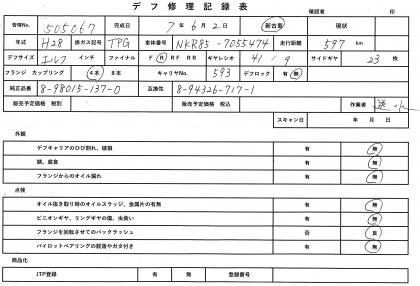 デフ修理記録表
確認者 印
管理No. 505067 完成日 7 年 6 月 2 日 新古車 現状
年式 H28 排ガス記号 TPG 車体番号 NKR85-7055474 走行距離 597 km
デフサイズ エルフ インチ ファイナル F R RF RR ギヤレシオ 41 / 9 サイドギヤ 23 枚
フランジ カップリング 4本 8本 キャリヤNo. 593 デフロック 有 無
純正品番 8-98015-137-0 互換性 8-94326-717-1
販売予定価格 税別 販売予定価格 税込 作業者
スキャン日 年 月 日
外観
デフキャリアのひび割れ、破損 有 無
錆、腐食 有 無
フランジからのオイル漏れ 有 無
点検
オイル抜き取り時のオイルスラッジ、金属片の有無 有 無
ピニオンギヤ、リングギヤの傷、虫食い 有 無
フランジを回転させてのバックラッシュ 否 良
パイロットベアリングの脱落やガタ付き 有 無
商品化
JTP登録 有 無 登録番号